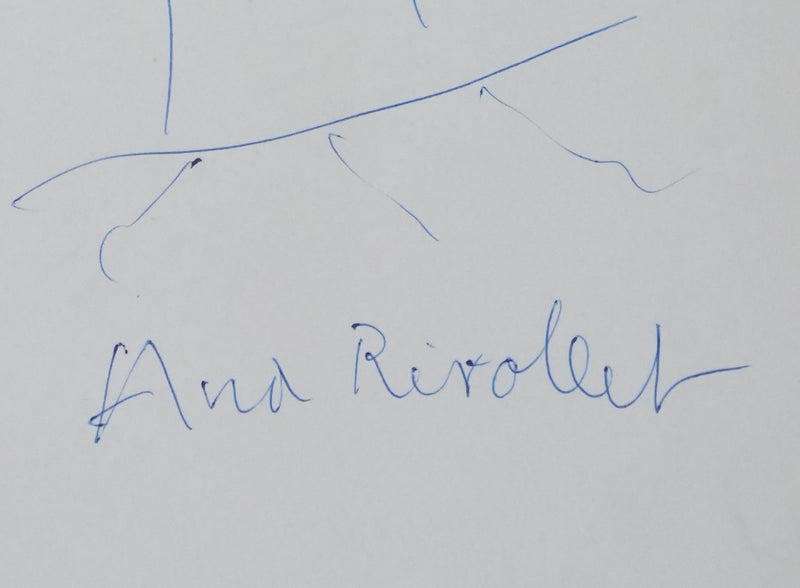 Ana Rivollet